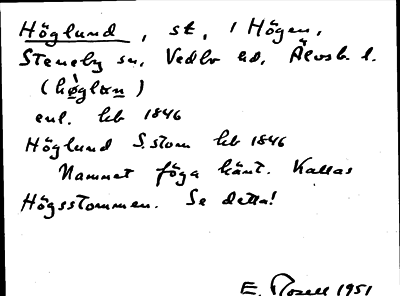 Höglund, st, i Högen,
Steneby sn, Vedbo hd, Älvsb. l.
(høglun)
enl. hb 1846
Höglund S.stom hb 1846
Namnet föga känt. Kallas
Högsstommen. Se detta!
E. Rosell 1951